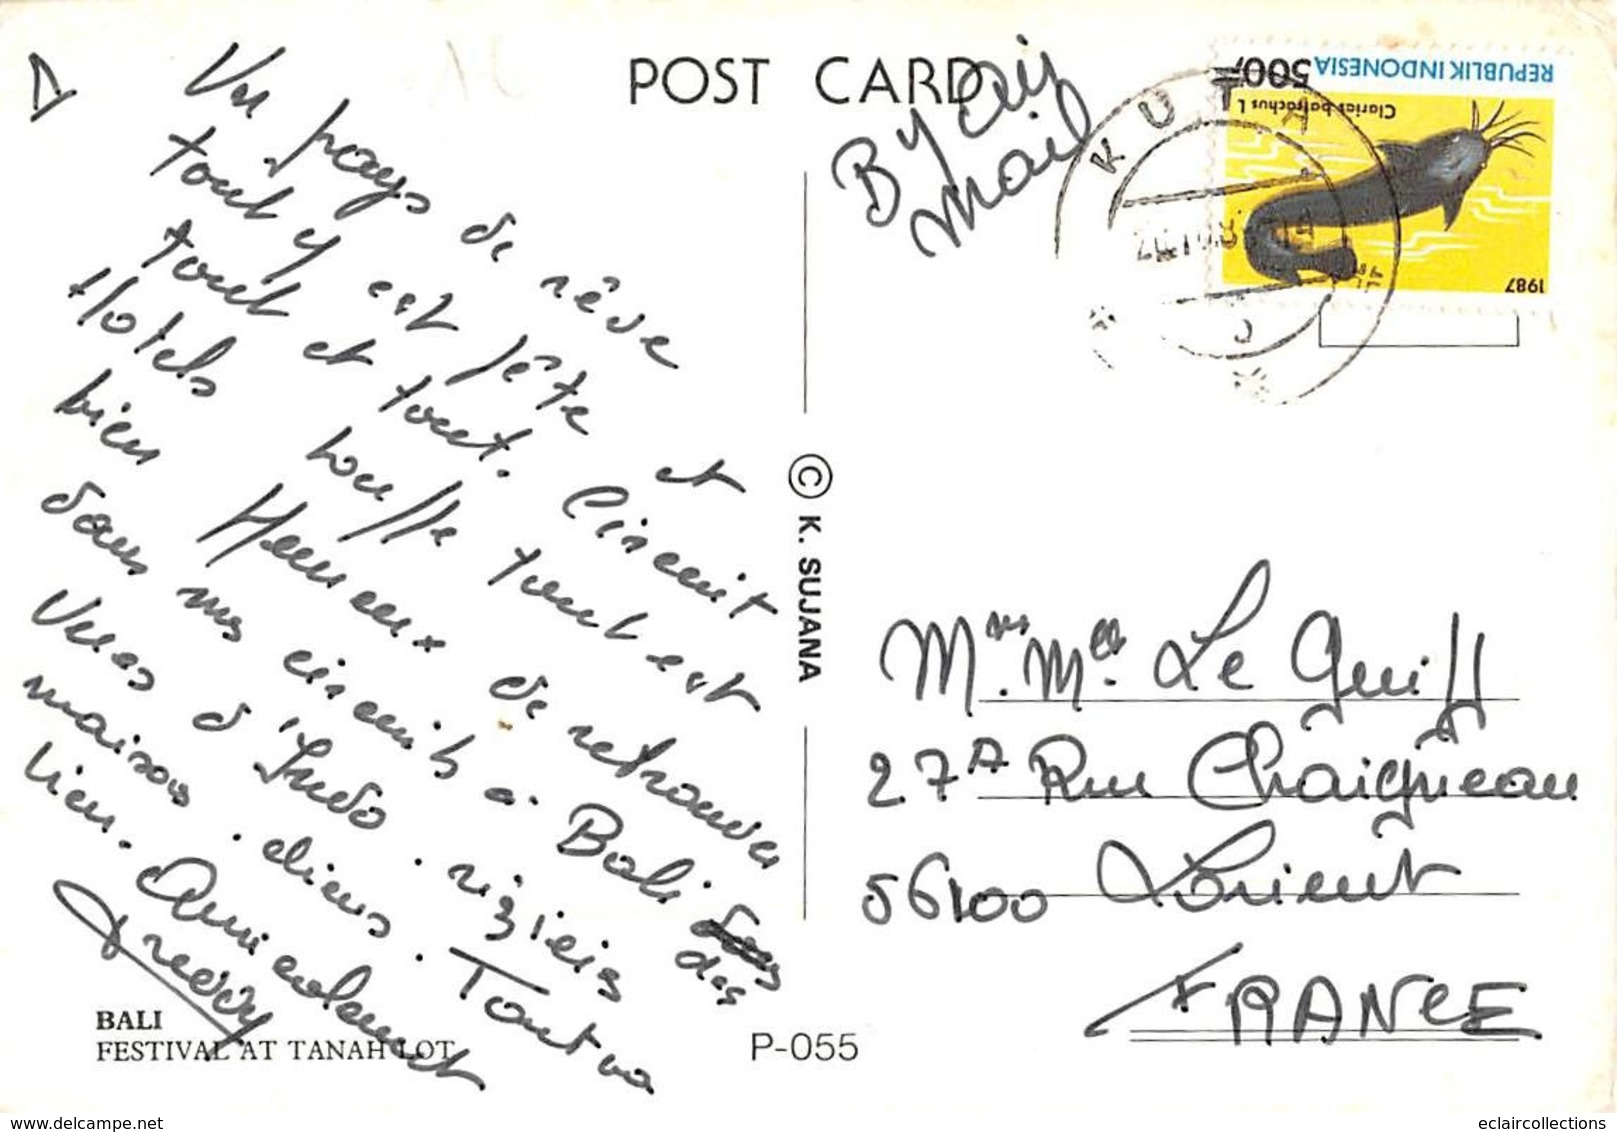 POST CARD
By air
mail
REPUBLIK INDONESIA 500
Clarias batrachus L
1987
KUTA
Un pays de rêve
tout y est fête et
tout et tout. Circuit
Hotels bouffe tout est
bien Heureux de retrouver
dans mes circuits à Bali des
vues d'Indo. riziers
maisons. dieux. Tout va
bien. Amicalement
Freddy
© K. SUJANA
Mr. Mlle. Le Guiff
27A Rue Chaigneau
56100 Lorient
FRANCE
BALI
FESTIVAL AT TANAH LOT
P-055
www.delcampe.net
eclaircollections